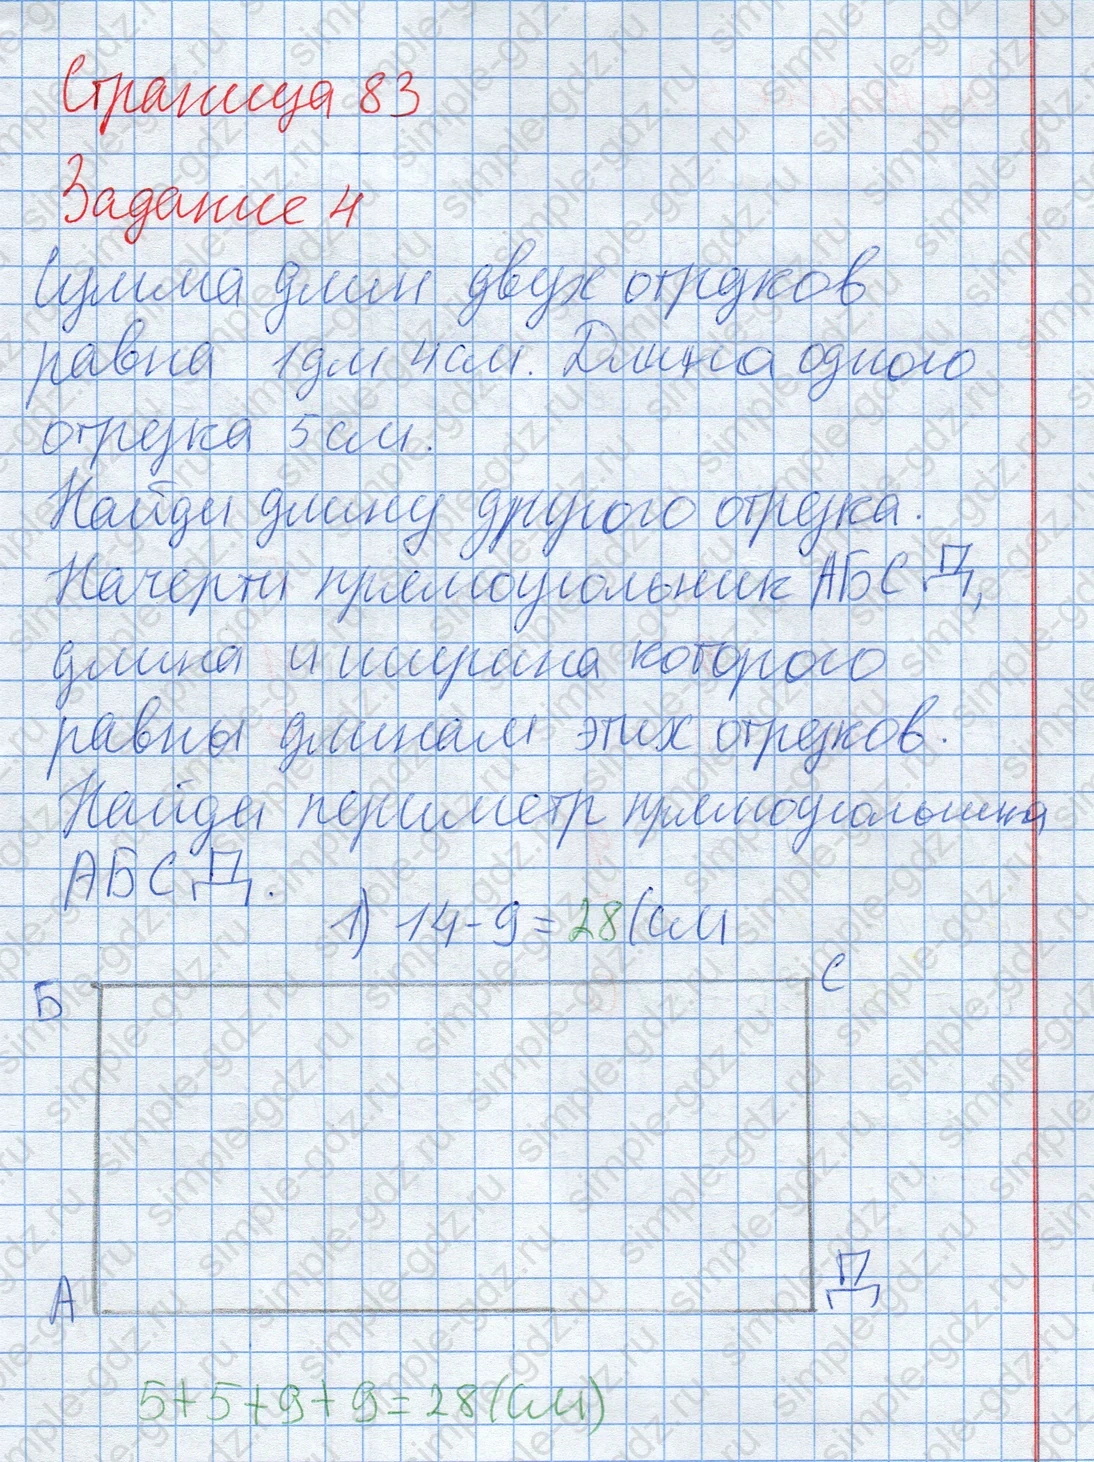 Страница 83
Задание 4
Сумма длин двух отрезков
равна 1дм 4см. Длина одного
отрезка 5см.
Найди длину другого отрезка.
Начерти прямоугольник АБСД,
длина и ширина которого
равны длинам этих отрезков.
Найди периметр прямоугольника
АБСД.
1) 14-9=28(см
Б
С
А
Д
5+5+9+9=28(см)
simple-gdz.ru